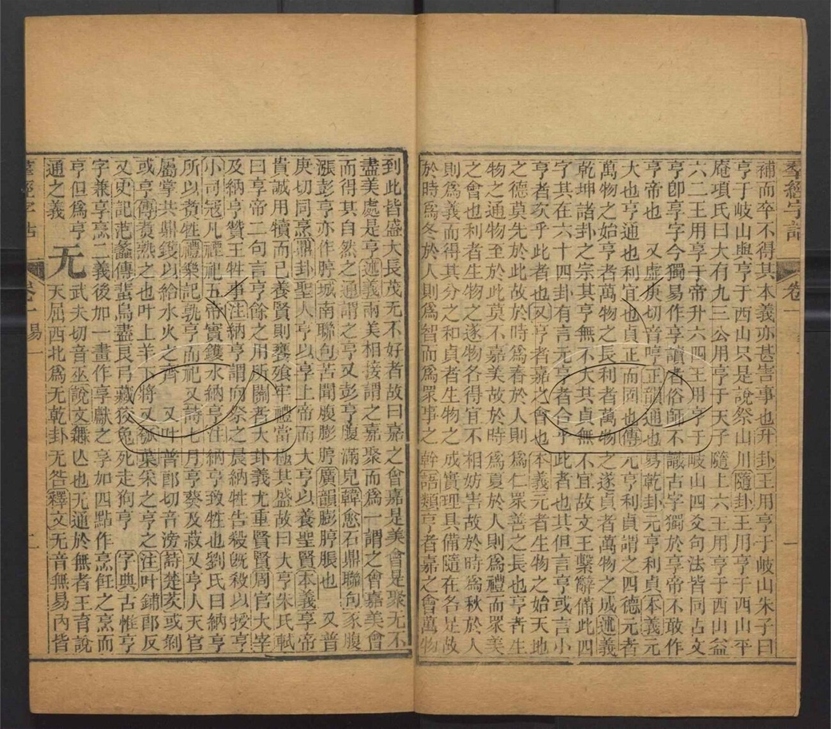 補而卒不得其本義亦甚害事也升卦王用亨于岐山朱子曰
亨于岐山與亨于西山只是說祭山川隨卦王用亨于西山平
庵項氏曰大有九三公用亨于天子隨上六王用亨于西山益
六二王用亨于帝升六四王用亨于岐山四爻句法皆同古文
亨卽享字今獨易作享讀者俗師不識古字獨於享帝不敢作
亨帝也 又虛庚切音哼正韻通也易乾卦元亨利貞本義元
大也亨通也利宜也貞正而固也傳元亨利貞謂之四德元者
萬物之始亨者萬物之長利者萬物之遂貞者萬物之成述義
乾坤諸卦之宗其亨無不大其貞無不宜故文王繫辭備此四
字其在六十四卦有言元亨者合乎此者也其但言亨或言小
亨者次乎此者也又亨者嘉之會也本義元者生物之始天地
之德莫先於此故於時爲春於人則爲仁眾善之長也亨者生
物之通物至於此莫不嘉美故於時爲夏於人則爲禮而眾美
之會也利者生物之遂物各得宜不相妨害故於時爲秋於人
則爲義而得其分之和貞者生物之成實理具備隨在各足故
於時爲冬於人則爲智而爲眾事之幹語類亨者嘉之會萬物
羣經字詁
卷一
一
到此皆盛大長茂无不好者故曰嘉之會嘉是美會是聚无不
盡美處是亨述義兩美相接謂之嘉聚而爲一謂之會嘉美會
而得其自然之通謂之亨又彭亨腹滿皃韓愈石鼎聯句豕腹
漲彭亨亦作膨城南聯句苦開腹膨脝廣韻膨脝脹也 又普
庚切同烹鼎卦聖人亨以享上帝而大亨以養聖賢本義享帝
貴誠用犢而已養賢則饔飧牢禮當極其盛故曰大亨朱氏軾
曰享帝二句言亨餘之用所關者大卦義尤重賢賢周官大宰
及納亨贊王牲事注納亨謂向祭之晨納牲告殺旣殺以授亨
小司寇凡禋祀五帝實鑊水納亨注納亨致牲也劉氏曰納亨
所以煑牲禮樂記孰亨而祀又詩七月亨葵及菽又亨人天官
屬掌共鼎鑊以給水火之齊 又叶普郎切音滂詩楚茨或剝
或亨傳煑熟之也叶上羊下將又張葉朵之亨之注叶鋪郎反
又史記范蠡傳蜚鳥盡良弓藏狡兔死走狗亨 字典古惟亨
字兼享烹二義後加一畫作享獻之享加四點作烹飪之烹而
亨但爲亨
通之義
无
武夫切音巫說文無亾也无通於無者王育說
天屈西北爲无乾卦无咎釋文无音無易內皆
卷一易
二